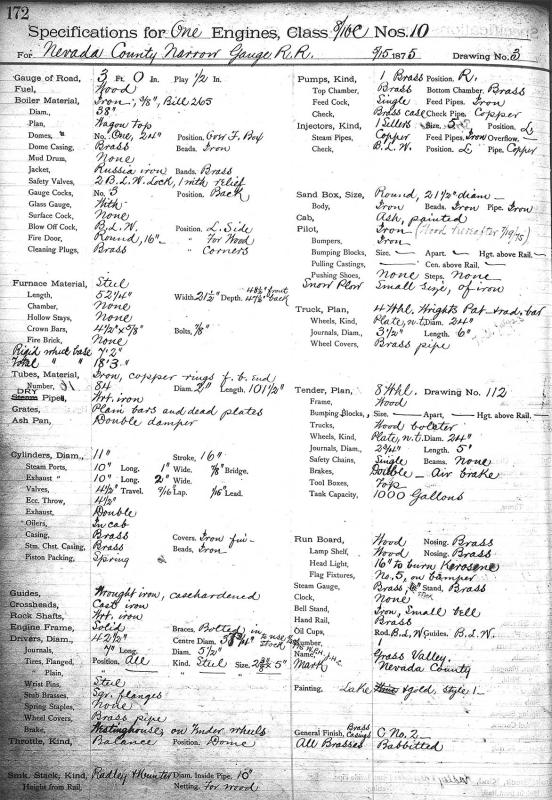 172
Specifications for One Engines, Class 8/16C Nos. 10
For Nevada County Narrow Gauge R.R. 9/15 1875 Drawing No. 3
Gauge of Road, 3 Ft. 0 In. Play 1/2 In.
Fuel, Wood
Boiler Material, Iron, 3/8", Bill 265
Diam., 38"
Plan, Wagon top
Domes, " No. One, 24" Position. Over F. Box
Dome Casing, Brass Beads. Iron
Mud Drum, None
Jacket, Russia iron Bands. Brass
Safety Valves, 2 B.L.W. Lock, 1 with relief
Gauge Cocks, No. 3 Position. Back
Glass Gauge, With
Surface Cock, None
Blow Off Cock, B.L.W. Position. L. Side
Fire Door, Round, 16" " For Wood
Cleaning Plugs, Brass " Corners
Furnace Material, Steel
Length, 52 1/4" Width. 21 1/2" Depth. 48 1/2" front 47 1/2" back
Chamber, None
Hollow Stays, None
Crown Bars, 4 1/2" x 5/8" Bolts, 7/8"
Fire Brick, None
Rigid wheel base 7' 2"
Total " " 18' 3"
Tubes, Material, Iron, copper rings f. b. End
Number, 91 84 Diam. 2" Length. 101 1/2"
DRY Steam Pipes, Wrt. iron
Grates, Plain bars and dead plates
Ash Pan, Double damper
Cylinders, Diam., 11" Stroke, 16"
Steam Ports, 10" Long. 1" Wide. 7/8" Bridge.
Exhaust " 10" Long. 2" Wide.
Valves, 4 1/2" Travel. 9/16" Lap. 1/16" Lead.
Ecc. Throw, 4 1/2"
Exhaust, Double
" Oilers, In cab
Casing, Brass Covers. Iron fin-
Stm. Chst. Casing, Brass Beads, Iron
Piston Packing, Spring
Guides, Wrought iron, casehardened
Crossheads, Cast iron
Rock Shafts, Wrt. iron
Engine Frame, Solid Braces, Bolted
Drivers, Diam., 42 1/2" Centre Diam.
Journals, 7" Long Diam. 5 1/2"
Tires, Flanged, Position. All Kind. Steel Size. 5"
Plain, " " "
Wrist Pins, Steel
Stub Brasses, Sqr. flanges
Spring Staples, None
Wheel Covers, Brass pipe
Brake, Westinghouse, on Tender wheels
Throttle, Kind, Balance Position. Dome
Smk. Stack, Kind, Radley & Hunter Diam. Inside Pipe, 10"
Height from Rail, Netting. For wood
Pumps, Kind, 1 Brass Position. R.
Top Chamber, Brass Bottom Chamber. Brass
Feed Cock, Single Feed Pipes. Iron
Check, Brass case Check Pipe. Copper
Injectors, Kind, 1 Sellers Size. 5 Position, L
Steam Pipes, Copper Feed Pipes, Iron Overflow.
Check, B.L.W. Position, L. Pipe. Copper
Sand Box, Size, Round, 21 1/2" diam
Body, Iron Beads. Iron Pipe. Iron
Cab, Ash, painted
Pilot, Iron (Wood hereafter 7/19/75)
Bumpers, Iron
Bumping Blocks, Size. — Apart, — Hgt. above Rail. —
Pulling Castings, — Cen. above Rail. —
Pushing Shoes, None Steps. None
Snow Plow Small size, of iron
Truck, Plan, 4 Whl. Wrights Pat. rad. bar
Wheels, Kind, Plate, w.t. Diam. 24"
Journals, Diam., 3 1/2" Length. 6"
Wheel Covers, Brass pipe
Tender, Plan, 8 Whl. Drawing No. 112
Frame, Wood
Bumping Blocks, Size — Apart, — Hgt. above Rail —
Truck, Wood bolster
Wheels, Kind, Plate, w.t. Diam. 24"
Journals, Diam., 2 3/4" Length, 5"
Safety Chains, Single Beams. None
Brakes, Double — Air brake
Tool Boxes, Top
Tank Capacity, 1000 Gallons
Run Board, Wood Nosing. Brass
Lamp Shelf, Wood Nosing. Brass
Head Light, 16" to burn Kerosene
Flag Fixtures, No. 5, on bumper
Steam Gauge, Brass Stand, Brass
Clock, None
Bell Stand, Iron, Small bell
Hand Rail, Brass
Oil Cups, Rod. B.L.W. Guides. B.L.W.
Number,
Name, Grass Valley.
Mark Nevada County
Painting, Lake & gold, style 1
General Finish, Brass Casings C No. 2
All Brasses Babbitted